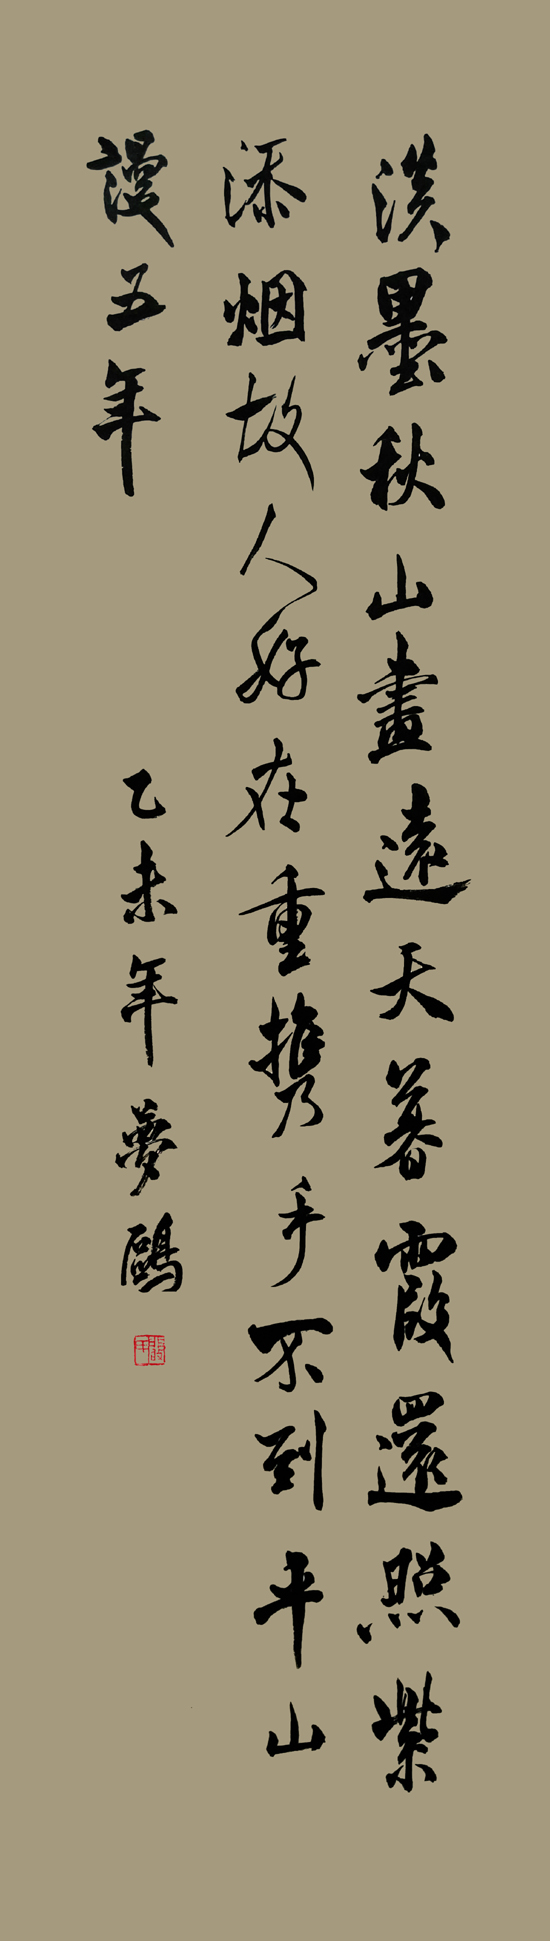 淡墨秋山畫遠天暮霞還照紫
添烟故人好在重携手不到平山
謾五年
乙未年夢鷗